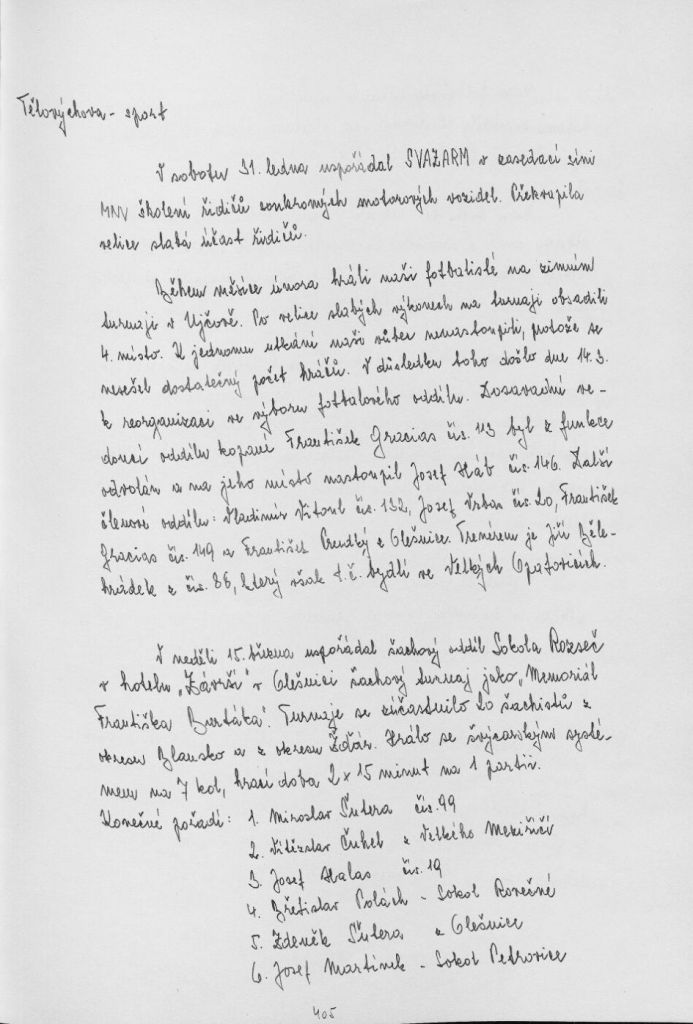 Tělovýchova - sport
V sobotu 31. ledna uspořádal SVAZARM v zasedací síni
MNV školení řidičů soukromých motorových vozidel. Překvapila
velice slabá účast řidičů.
Během měsíce února hráli naši fotbalisté na zimním
turnaji v Ujčově. Po velice slabých výkonech na turnaji obsadili
4. místo. K jednomu utkání naši vůbec nenastoupili, protože se
nesešel dostatečný počet hráčů. V důsledku toho došlo dne 14.3.
k reorganizaci ve výboru fotbalového oddílu. Dosavadní ve-
doucí oddílu kopané František Gracias čís. 113 byl z funkce
odvolán a na jeho místo nastoupil Josef Háb čís. 146. Další
členové oddílu: Vladimír Vitoul čís. 132, Josef Vrba čís. 20, František
Gracias čís. 149 a František Prudký z Olešnice. Trenérem je Jiří Běle-
hrádek z čís. 86, který však t.č. bydlí ve Velkých Opatovicích.
V neděli 15. března uspořádal šachový oddíl Sokola Rozseč
v hotelu „Závrší" v Olešnici šachový turnaj jako „Memoriál
Františka Burtáka". Turnaje se zúčastnilo 20 šachistů z
okresu Blansko a z okresu Žďár. Hrálo se švýcarským systé-
mem na 7 kol, hrací doba 2 x 15 minut na 1 partii.
Konečné pořadí: 1. Miroslav Šutera čís. 99
2. Vítězslav Čuhel z Velkého Meziříčí
3. Josef Halas čís. 19
4. Břetislav Polách - Sokol Rovečné
5. Zdeněk Šutera z Olešnice
6. Josef Martínek - Sokol Petrovice
405